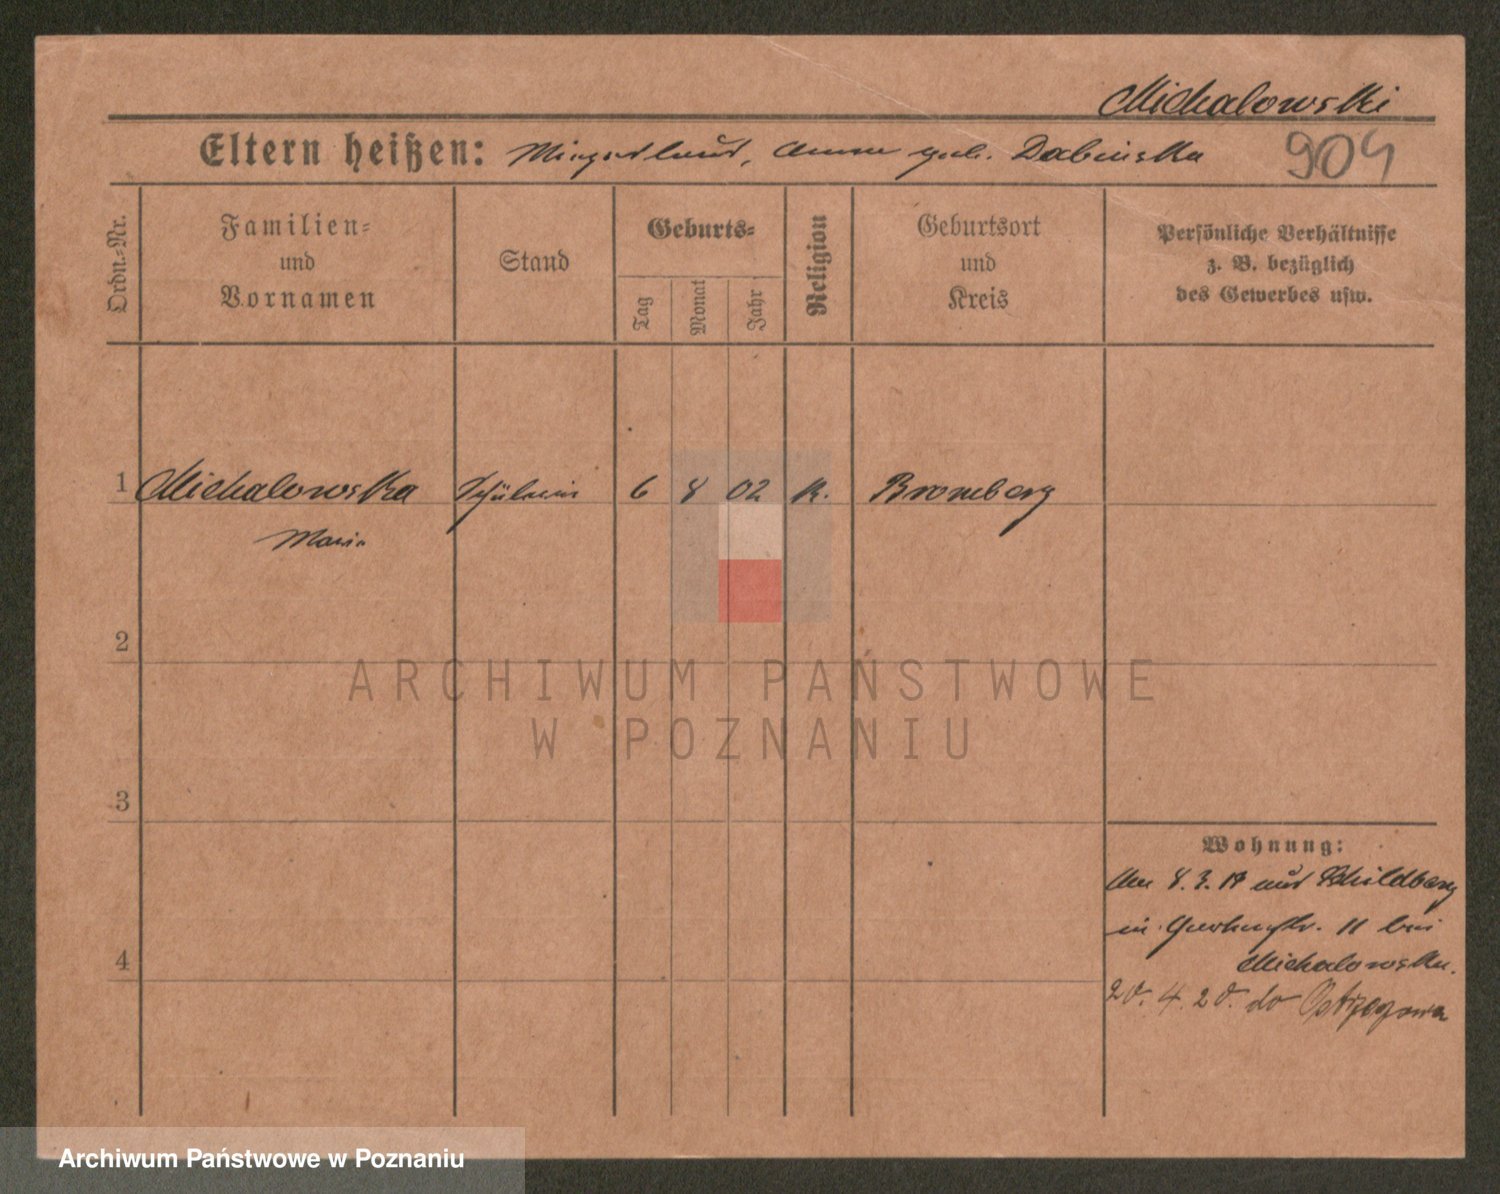 Michalowski
Eltern heißen: Anna geb. Dabinska 904
Ordn.-Nr.
Familien-
und
Vornamen
Stand
Geburts-
Tag
Monat
Jahr
Religion
Geburtsort
und
Kreis
Persönliche Verhältnisse
z. B. bezüglich
des Gewerbes usw.
1 Michalowska Schülerin 6 8 02 k. Bromberg
Maria
2
ARCHIWUM PAŃSTWOWE
W POZNANIU
3
Wohnung:
Am 8.3.19 aus Schildberg
in 11 bei
Michalowska.
4
20. 4. 20. do Ostrzeszowa
Archiwum Państwowe w Poznaniu